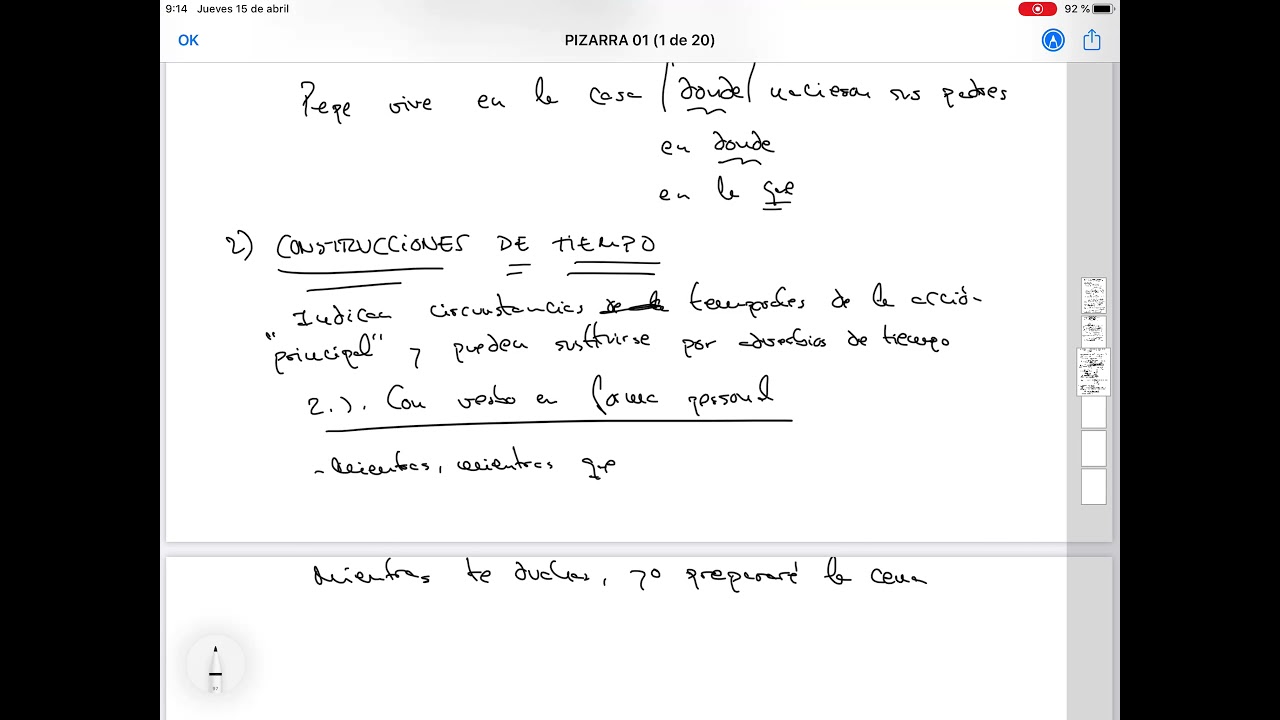 9:14 Jueves 15 de abril 92 %
OK PIZARRA 01 (1 de 20)
Pepe vive en la casa / donde / nacieron sus padres
en donde
en la que
2) CONSTRUCCIONES DE TIEMPO
Indican circunstancias temporales de la acción
"principal" y pueden sustituirse por adverbios de tiempo
2.1. Con verbo en forma personal
- Mientras, mientras que
Mientras te duchas, yo prepararé la cena